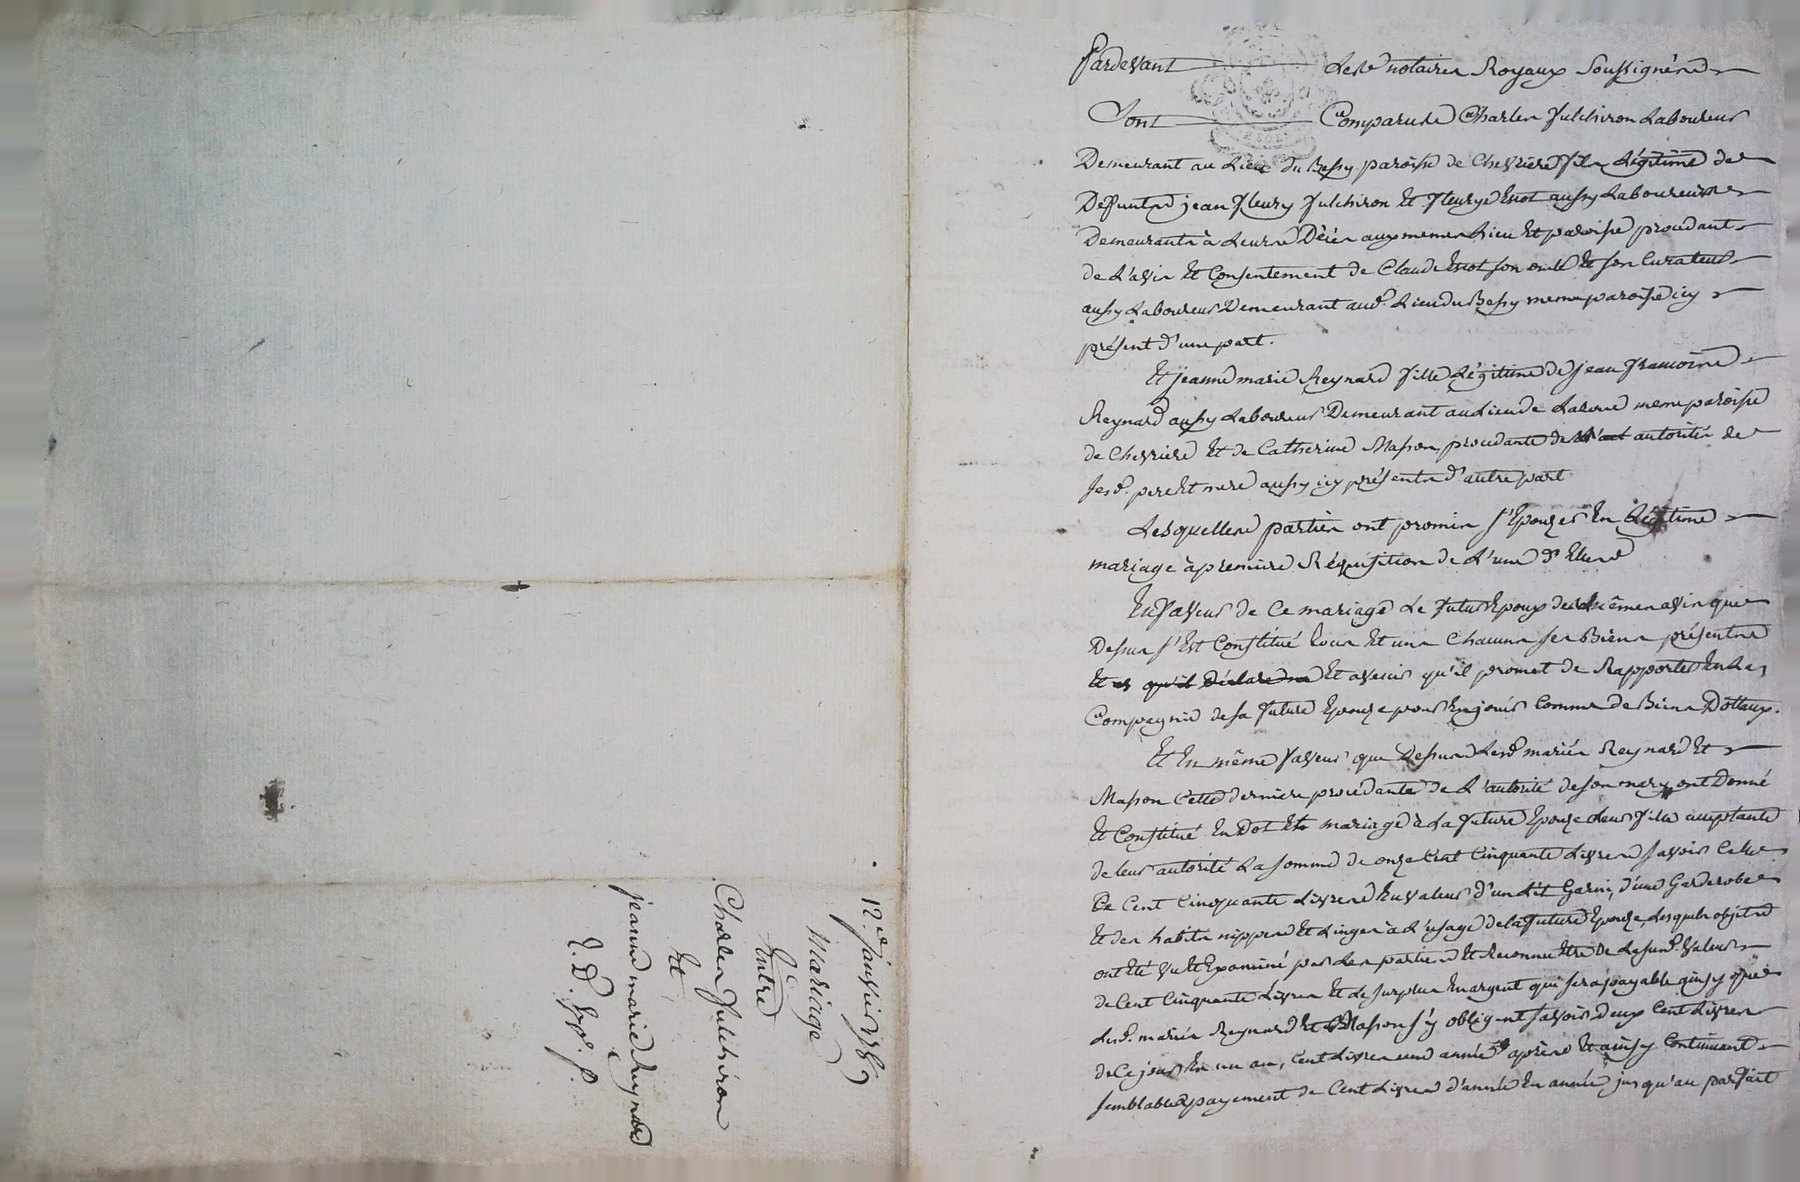 Pardevant Les notaires Royaux Soussignés
Sont Comparus Charles fulchiron Laboureur
Demeurant au Lieu du Bessy paroisse de Chevrieres fils Légitime de
Deffunts jean fleury fulchiron Et fleurye aussy Laboureurs
Demeurants à Leurs Décés aux memes Lieu Et paroisse procedant
de L'avis Et Consentement de Claude son oncle Et son Curateur
aussy Laboureur Demeurant aud. Lieu du Bessy meme paroisse icy
présent d'une part.
Et jeanne marie Reynard fille Légitime de jean francoise
Reynard aussy Laboureur Demeurant au Lieu de meme paroisse
de Chevriere Et de Catherine Masson procedante de autorités de
sesd. pere Et mere aussy icy présents d'autre part
Lesquelles parties ont promis s'Epouzer En Légitime
mariage à premiere Réquisition de L'une d'Elles
En faveur de Ce mariage Le futur Epoux de mêmes avis que
Dessus s'Est Constitué tous Et uns Chacuns ses Biens présents
Et qu'il Déclare Et avenir qu'il promet de Rapporter En La
Compagnie de sa future Epouze pour En jouir Comme de Biens Dottaux.
Et En même faveur que Dessus Lesd. mariés Reynard Et
Masson Cette derniere procédante de L'autorité de son mary, ont Donné
Et Constitué En Dot Et mariage à La future Epouze Leur fille acceptante
de leur autorité La somme de onze Cent Cinquante Livres savoir Celle
De Cent Cinquante Livres En valeur d'un Lit Garni, d'une Garderobe
Et des habits nippes Et Linges à L'usage de la future Epouze, Lesquels objets
ont Eté vu Et Examiné par Les parties Et Reconnu Etre de La susd. valeur
de Cent Cinquante Livres Et Le surplus En argent qui sera payable ainsy que
Lesd. mariés Reynard Et Masson s'y obligent savoir Deux Cent Livres
de Ce jour En un an, Cent Livres une année après Et ainsy Continuant
semblable payement de Cent Livres d'année En année jusqu'au parfait
12e. janvier
Mariage
Entre
Charles fulchiron
Et
jeanne marie Reynard